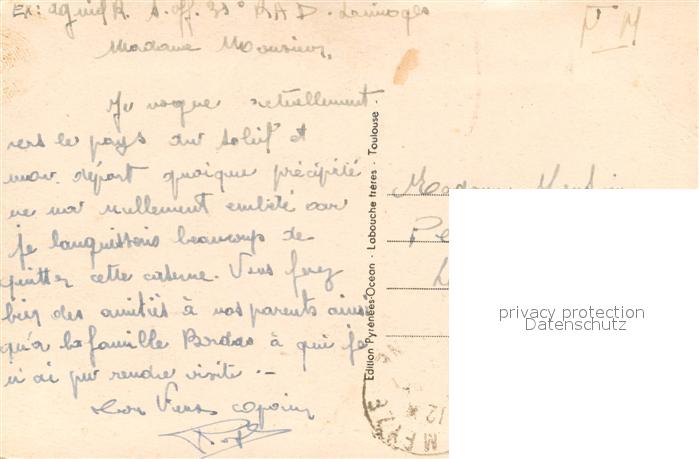 Ex: R. S. off. 35° R A D - Limoges
F M
Madame Monsieur,
Je vogue actuellement
vers le pays du soleil et
mon départ quoique précipité
ne m'a nullement embêté car
je languissais beaucoup de
quitter cette caserne. Vous ferez
bien des amitiés à vos parents ainsi
qu'à la famille Bardas à qui je
n'ai pu rendre visite. -
Edition Pyrénées-Océan - Labouche frères - Toulouse -
Madame
Pe
privacy protection
Datenschutz
12